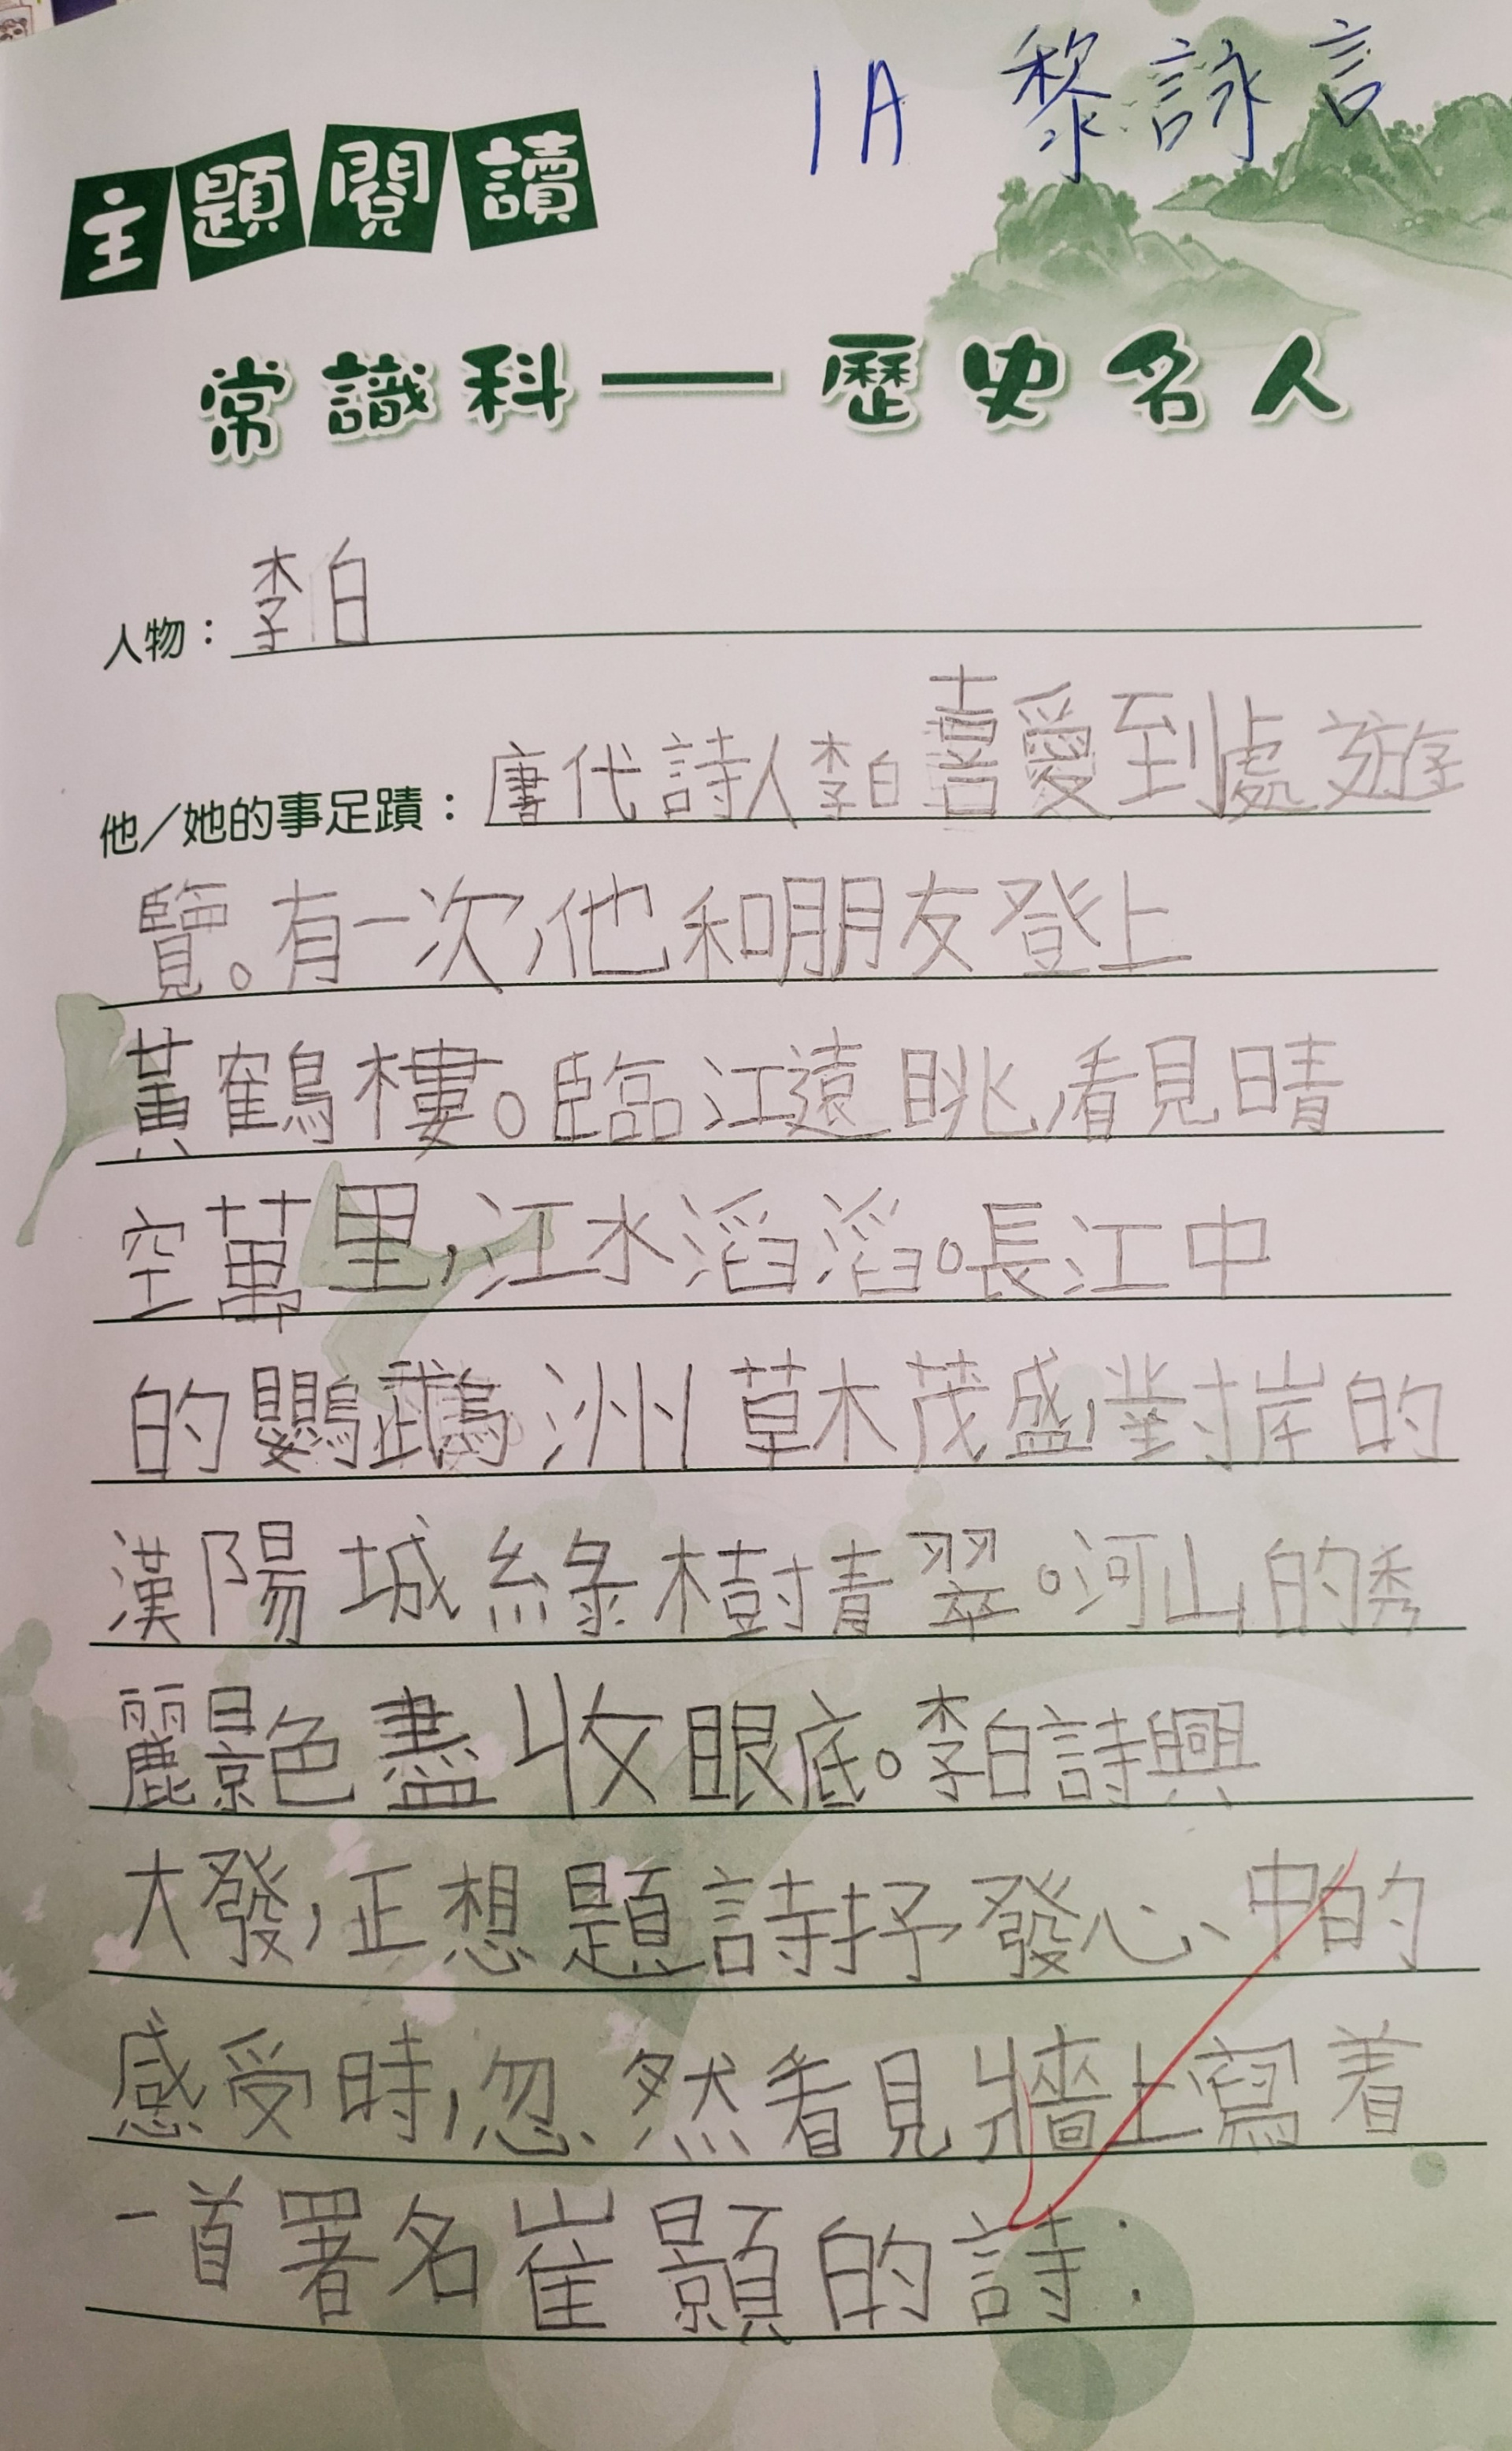 1A 黎詠言
主題閱讀
常識科——歷史名人
人物：李白
他／她的事足蹟：唐代詩人李白喜愛到處遊
覽。有一次,他和朋友登上
黃鶴樓。臨江遠眺,看見晴
空萬里,江水滔滔。長江中
的鸚鵡洲草木茂盛,對岸的
漢陽城綠樹青翠。河山的秀
麗景色盡收眼底。李白詩興
大發,正想題詩抒發心中的
感受時,忽然看見牆上寫着
一首署名崔顥的詩：